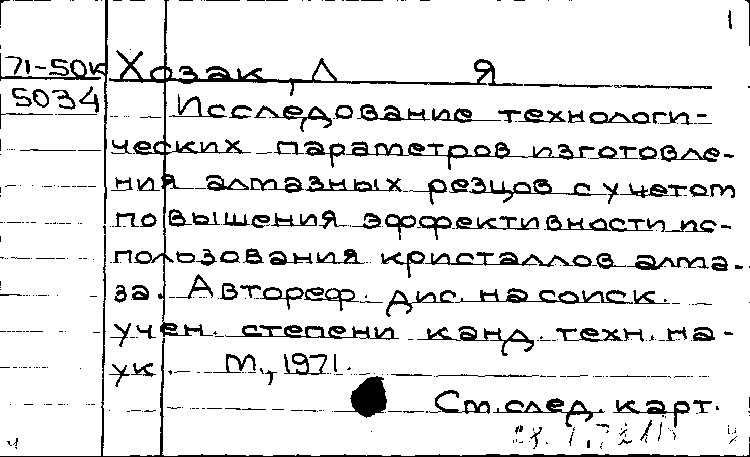 1
71-50к Хозак, Л Я
5034 Исследование технологи-
ческих параметров изготовле-
ния алмазных резцов с учетом
повышения эффективности ис-
пользования кристаллов алма-
за. Автореф. дис. на соиск.
учен. степени канд. техн. на-
ук. М., 1971.
См. след. карт.